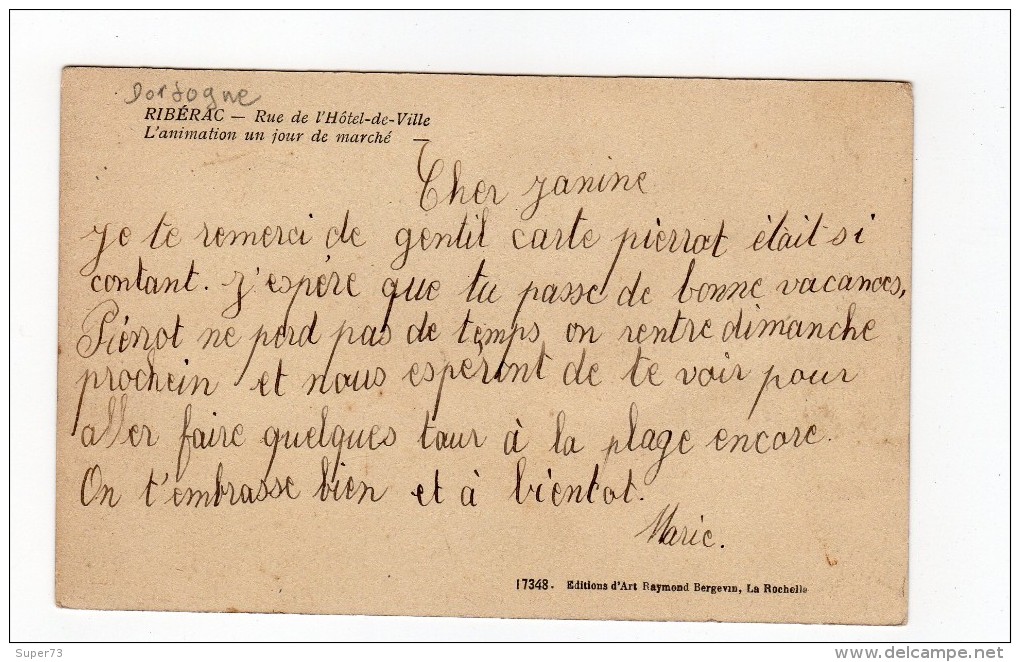 Dordogne
RIBÉRAC — Rue de l'Hôtel-de-Ville
L'animation un jour de marché —
Cher Janine
Je te remerci de gentil carte pierrot était si
contant. J'espére que tu passe de bonne vacances,
Piérrot ne perd pas de temps on rentre dimanche
prochein et nous espéront de te voir pour
aller faire quelques tour à la plage encore.
On t'embrasse bien et à bientot.
Marie.
17348. Editions d'Art Raymond Bergevin, La Rochelle
Super73
www.delcampe.net